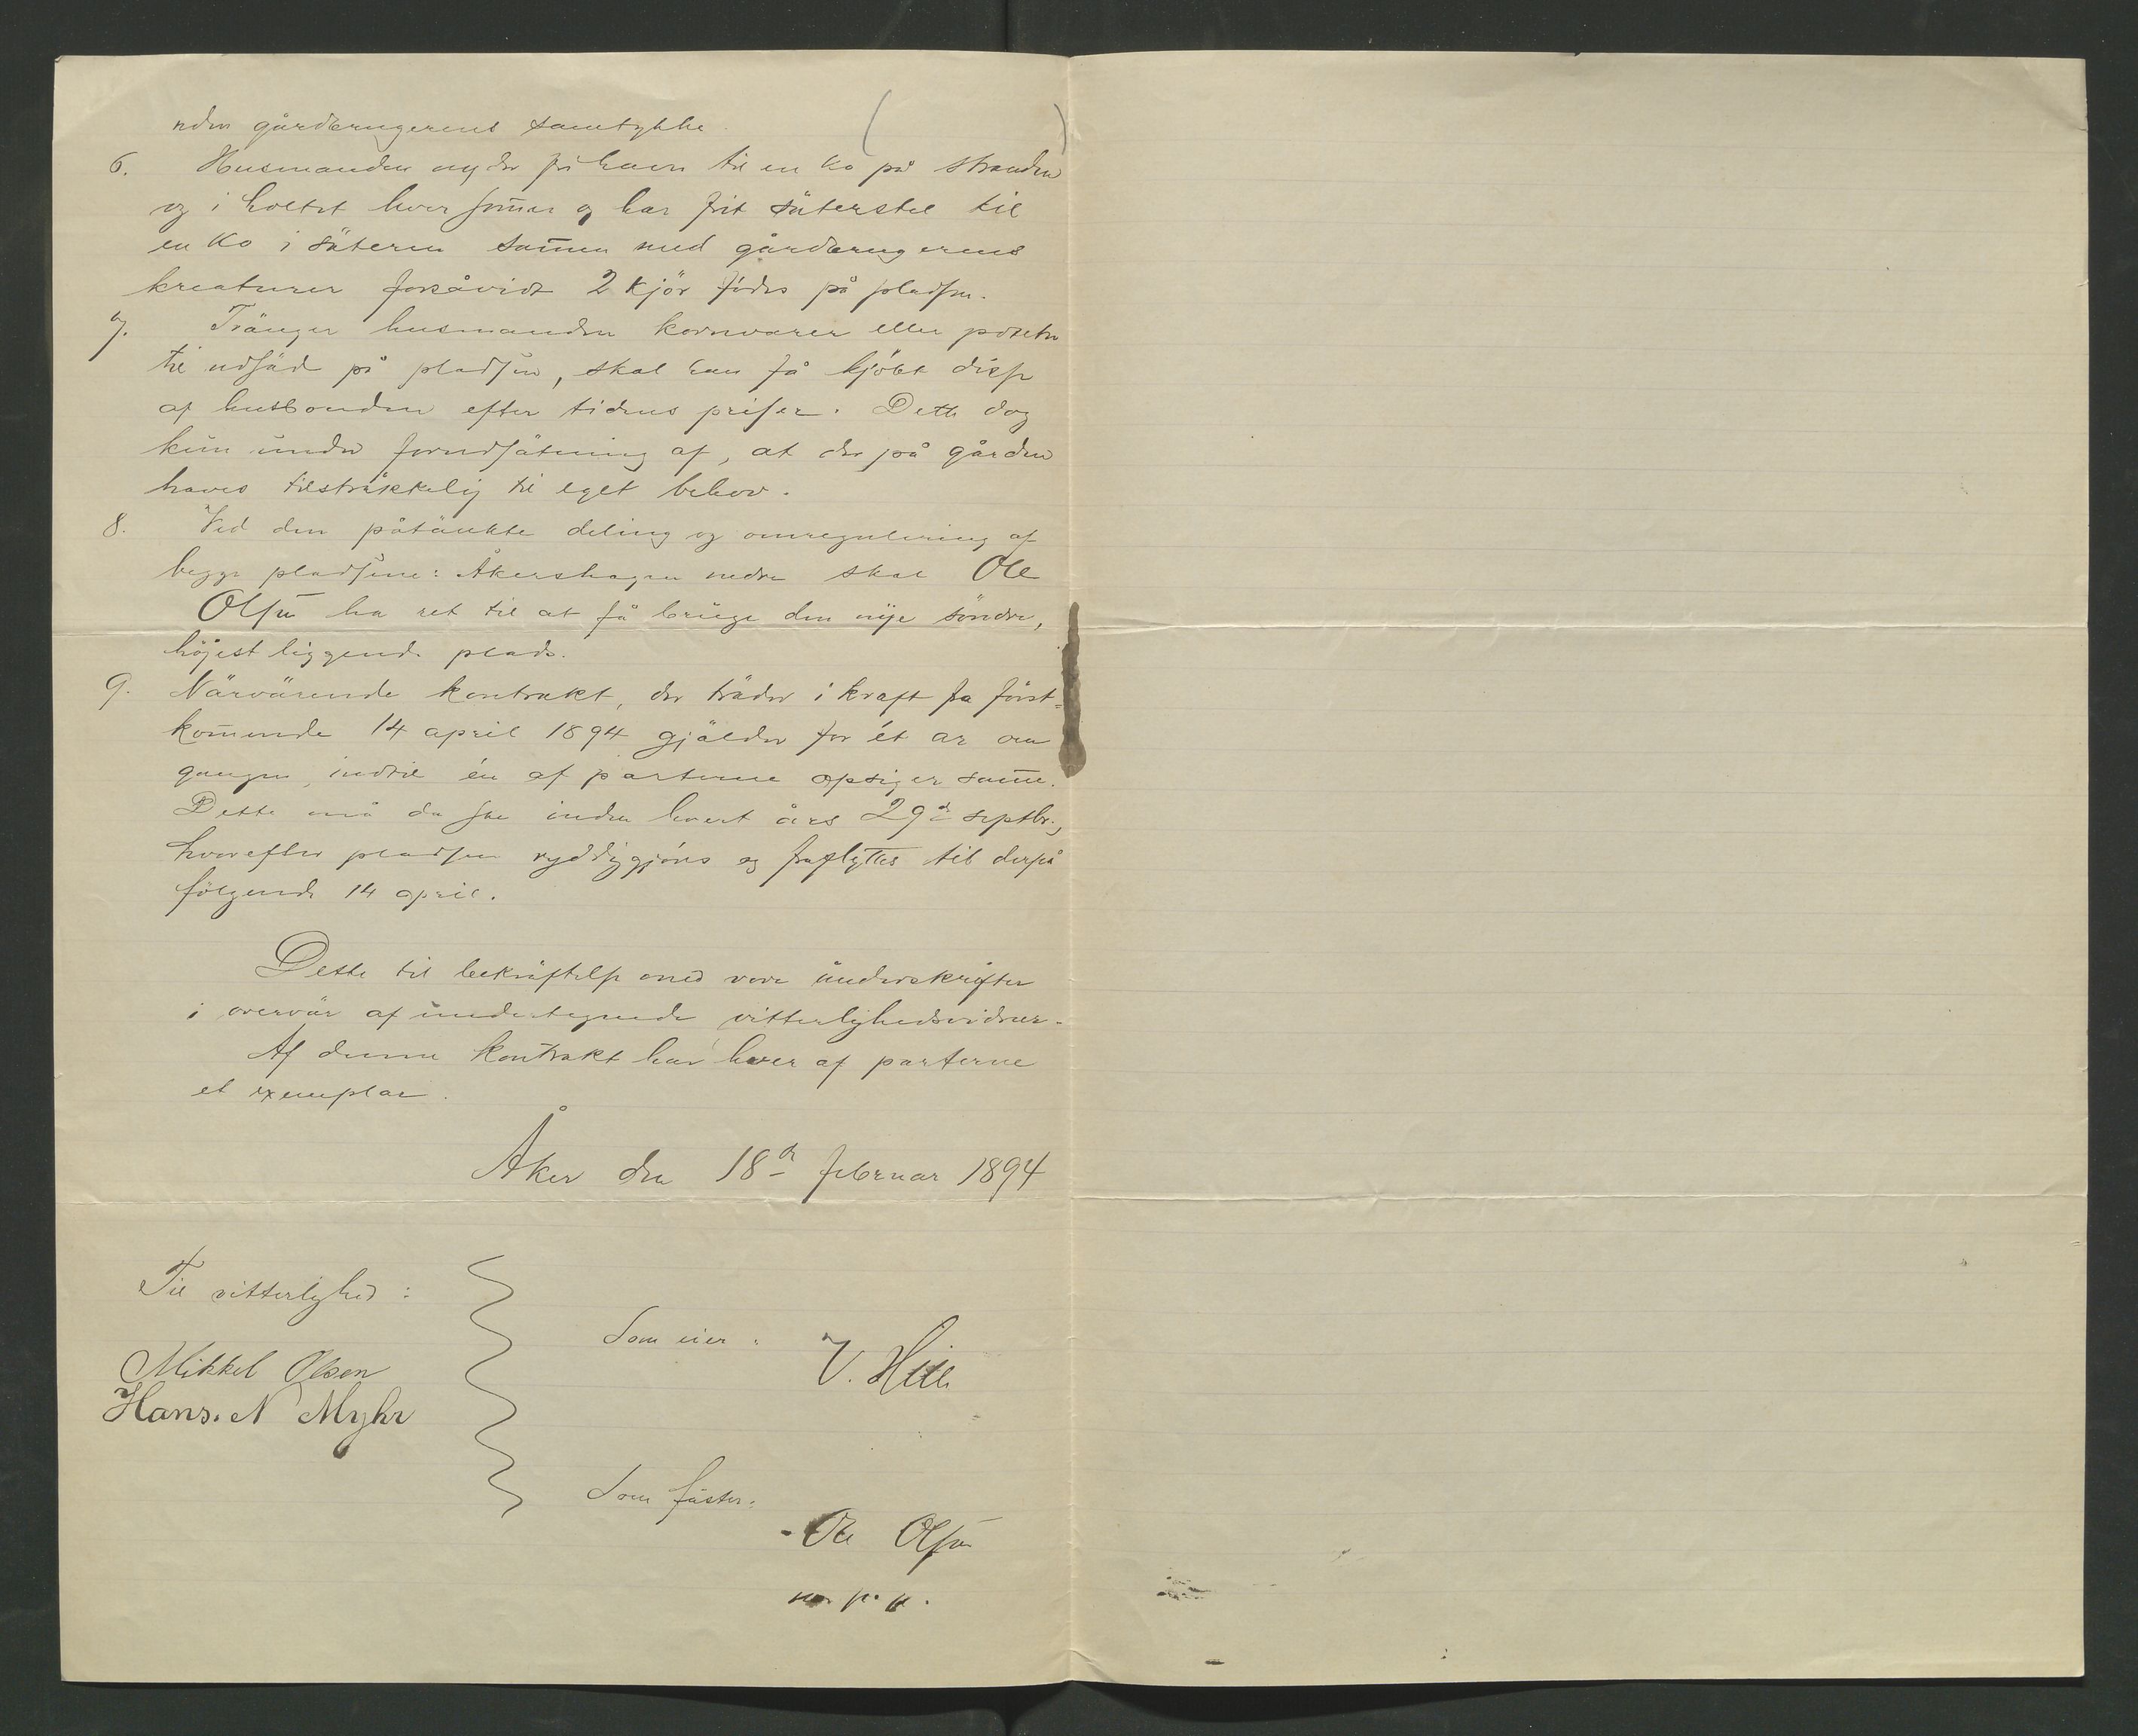 uden gårdbrugerens samtykke.
6. Husmanden nyder fri havn til en ko på stranden
og i holtet hver som̄er og har frit säterstel til
en ko i säteren sam̄en med gårdbrugerens
kreaturer forsåvidt 2 kjör födes på pladsen.
7. Tränger husmanden kornvarer eller poteter
til udsäd på pladsen, skal han få kjöbt disse
af husbonden efter tidens priser. Dette dog
kun under forudsätning af, at der på gården
haves tilsträkkelig til eget behov.
8. Ved den påtänkte deling og omregulering af
begge pladsene: Åkershagen nedre skal Ole
Olsen ha ret til at få bruge den nye söndre,
höjest liggende plads.
9. Närvärende kontrakt, der träder i kraft fra först-
kom̄ende 14 april 1894 gjälder for ét år om
gangen, indtil én af parterne opsiger sam̄e.
Dette må da ske inden hvert års 29de septbr.,
hvorefter pladsen ryddiggjöres og fraflyttes til derpå
fölgende 14 april.
Dette til bekräftelse med vore underskrifter
i overvär af undertegnede vitterlighedsvidner.
Af denne kontrakt har hver af parterne
et exemplar.
Åker den 18de februar 1894
Til vitterlighed:
Mikkel Olsen
Hans. N Myhr
Som eier:
V. Hille
Som fäster:
Ole Olsen
m. p. p.